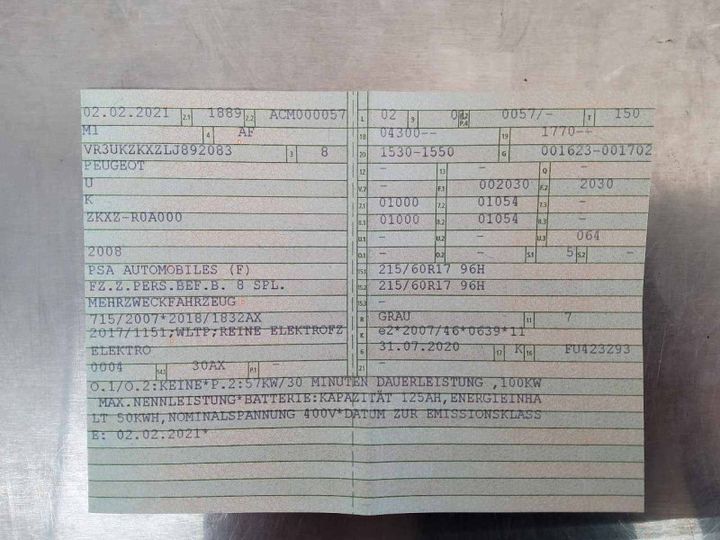 02.02.2021 2.1 1889 2.2 ACM000057 L 02 9 0 P.4 0057/- T 150
M1 4 AF 18 04300-- 19 1770--
VR3UKZKXZLJ892083 3 8 20 1530-1550 G 001623-001702
PEUGEOT 12 - 13 - Q -
U V.7 - F.1 002030 F.2 2030
K 7.1 01000 7.2 01054 7.3 -
ZKXZ-R0A000 8.1 01000 8.2 01054 8.3 -
U.1 - U.2 - U.3 064
2008 O.1 - O.2 - S.1 5 S.2 -
PSA AUTOMOBILES (F) 15.1 215/60R17 96H
FZ.Z.PERS.BEF.B. 8 SPL. 15.2 215/60R17 96H
MEHRZWECKFAHRZEUG 15.3 -
715/2007*2018/1832AX R GRAU 11 7
2017/1151;WLTP;REINE ELEKTROFZ K e2*2007/46*0639*11
ELEKTRO 6 31.07.2020 17 K 16 FU423293
0004 14.1 30AX P.1 - 21 -
O.1/O.2:KEINE*P.2:57KW/30 MINUTEN DAUERLEISTUNG ,100KW
MAX.NENNLEISTUNG*BATTERIE:KAPAZITÄT 125AH,ENERGIEINHA
LT 50KWH,NOMINALSPANNUNG 400V*DATUM ZUR EMISSIONSKLASS
E: 02.02.2021*